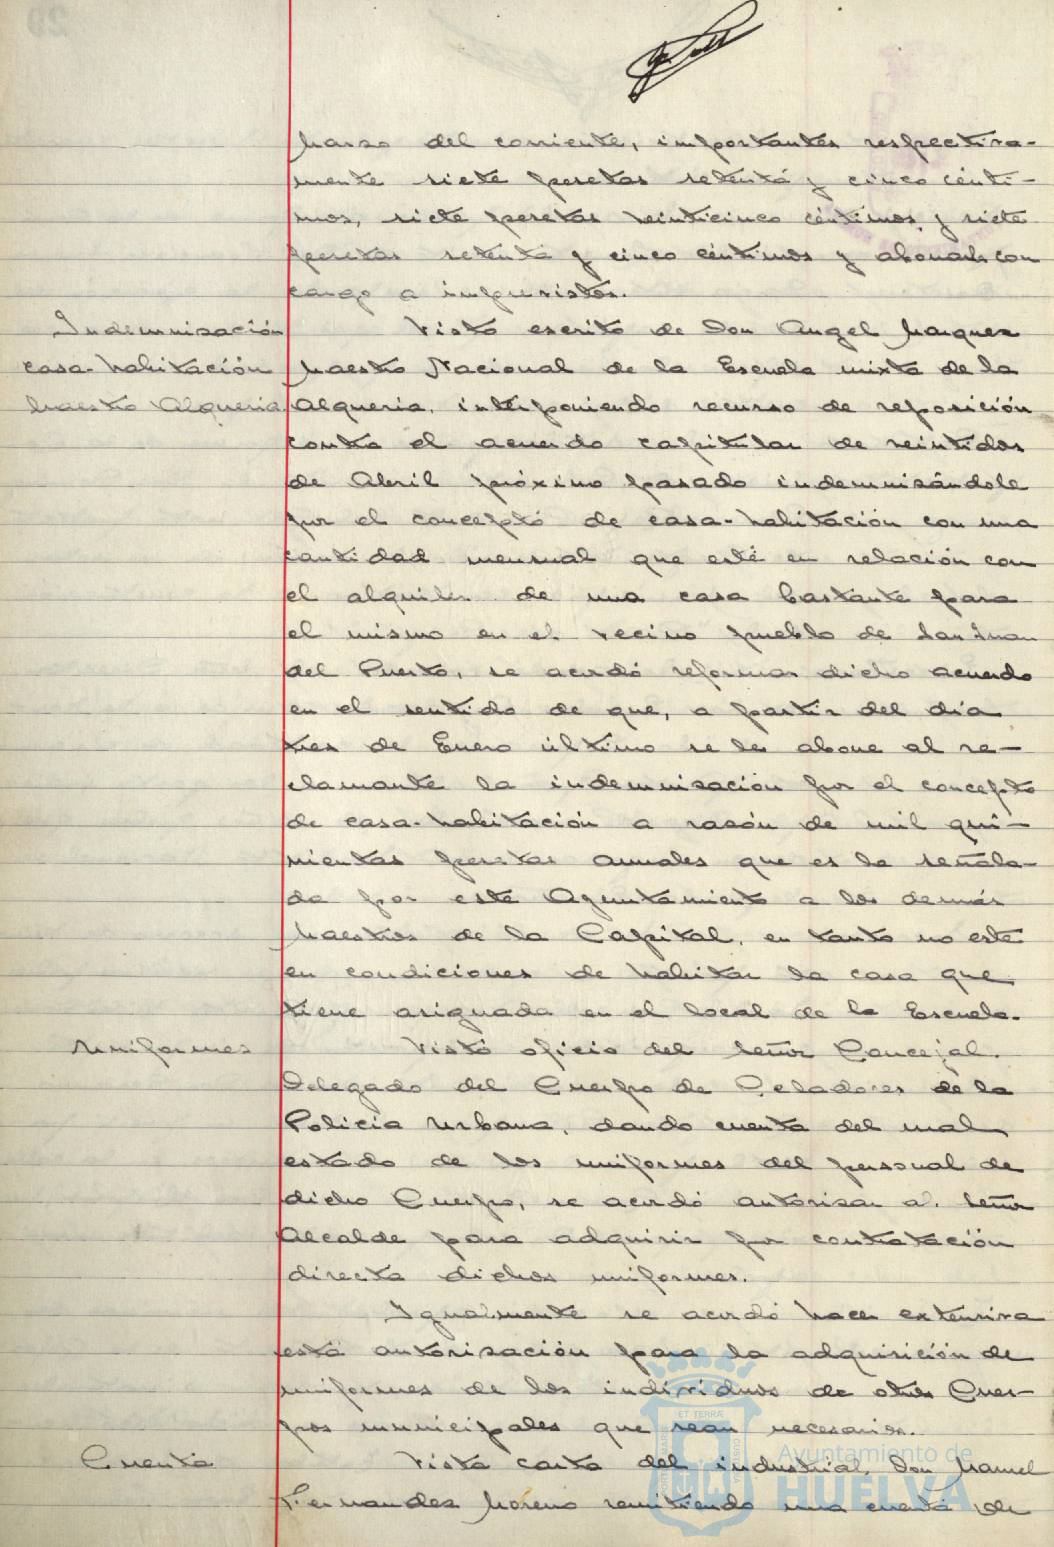 Marzo del corriente, importantes respectiva-
mente siete pesetas setenta y cinco cénti-
mos, siete pesetas veinticinco céntimos y siete
pesetas setenta y cinco céntimos y abonarlos con
cargo a imprevistos.
Indemnización
casa-habitación
Maestro Alqueria.
Visto escrito de Don Angel Marquez
Maestro Nacional de la Escuela mixta de la
Alqueria, interponiendo recurso de reposición
contra el acuerdo capitular de veintidos
de Abril próximo pasado indemnizándole
por el concepto de casa-habitación con una
cantidad mensual que esté en relación con
el alquiler de una casa bastante para
el mismo en el vecino pueblo de San Juan
del Puerto, se acordó reformar dicho acuerdo
en el sentido de que, a partir del dia
tres de Enero último se le abone al re-
clamante la indemnización por el concepto
de casa-habitación a razón de mil qui-
nientas pesetas anuales que es la señala-
da por este Ayuntamiento a los demás
Maestros de la Capital, en tanto no esté
en condiciones de habitar la casa que
tiene asignada en el local de la Escuela.
Uniformes
Visto oficio del Señor Concejal
Delegado del Cuerpo de Celadores de la
Policia Urbana, dando cuenta del mal
estado de los uniformes del personal de
dicho Cuerpo, se acordó autorizar al Señor
Alcalde para adquirir por contratación
directa dichos uniformes.
Igualmente se acordó hacer extensiva
esta autorización para la adquisición de
uniformes de los individuos de otros Cuer-
pos municipales que sean necesarios.
Cuenta
Vista carta del industrial Don Manuel
Fernandez Moreno remitiendo una cuenta de
ET TERRÆ
Ayuntamiento de
HUELVA